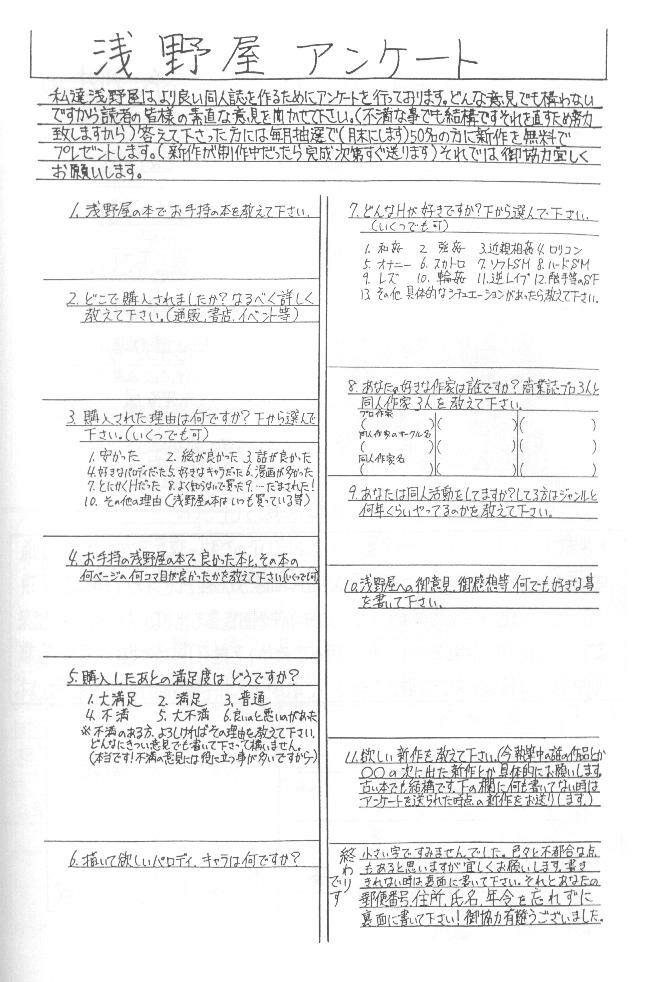 浅野屋 アンケート
私達浅野屋は、より良い同人誌を作るためにアンケートを行っております。どんな意見でも構わない
ですから読者の皆様の素直な意見を聞かせて下さい。(不満な事でも結構ですそれを直すため努力
致しますから)答えて下さった方には毎月抽選で(月末にします)50名の方に新作を無料で
プレゼントします。(新作が制作中だったら完成次第すぐ送ります)それでは、御協力宜しく
お願いします。
1. 浅野屋の本でお手持の本を教えて下さい。
2. どこで購入されましたか?なるべく詳しく
教えて下さい。(通販、書店、イベント等)
3. 購入された理由は何ですか?下から選んで
下さい。(いくつでも可)
1. 安かった 2. 絵が良かった 3. 話が良かった
4. 好きなパロディだった 5. 好きなキャラだった 6. 漫画が多かった
7. とにかくHだった 8. よく知らないで買った 9. …だまされた!
10. その他の理由(浅野屋の本はいつも買っている等)
4. お手持の浅野屋の本で良かった本と、その本の
何ページの何コマ目が良かったかを教えて下さい(いくつでも可)
5. 購入したあとの満足度はどうですか?
1. 大満足 2. 満足 3. 普通
4. 不満 5. 大不満 6. 良いのと悪いのがあった
※不満のある方、よろしければその理由を教えて下さい、
どんなにきつい意見でも書いて下さって構いません。
(本当です!不満の意見には役に立つ事が多いですから)
6. 描いて欲しいパロディ、キャラは何ですか?
7. どんなHが好きですか?下から選んで下さい。
(いくつでも可)
1. 和姦 2. 強姦 3. 近親相姦 4. ロリコン
5. オナニー 6. スカトロ 7. ソフトSM 8. ハードSM
9. レズ 10. 輪姦 11. 逆レイプ 12. 触手等のSF
13. その他 具体的なシチュエーションがあったら教えて下さい。
8. あなたの好きな作家は誰ですか?商業誌・プロ3人と
同人作家3人を教えて下さい。
プロ作家
( )( )( )
同人作家のサークル名
( )( )( )
同人作家名
( )( )( )
9. あなたは同人活動をしてますか?してる方はジャンルと
何年くらいやってるのかを教えて下さい。
10. 浅野屋への御意見、御感想等何でも好きな事
を書いて下さい。
11. 欲しい新作を教えて下さい。(今執筆中の話の作品とか
〇〇の次に出た新作とか具体的にお願いします。
古い本でも結構です。下の欄に何も書いてない時は
アンケートを送られた時点の新作をお送りします。)
終わりです
小さい字ですみませんでした。色々と不都合な点
もあると思いますが宜しくお願いします。書き
きれない時は裏面に書いて下さい。それとあなたの
郵便番号、住所、氏名、年令を忘れずに
裏面に書いて下さい!御協力有難うございました。